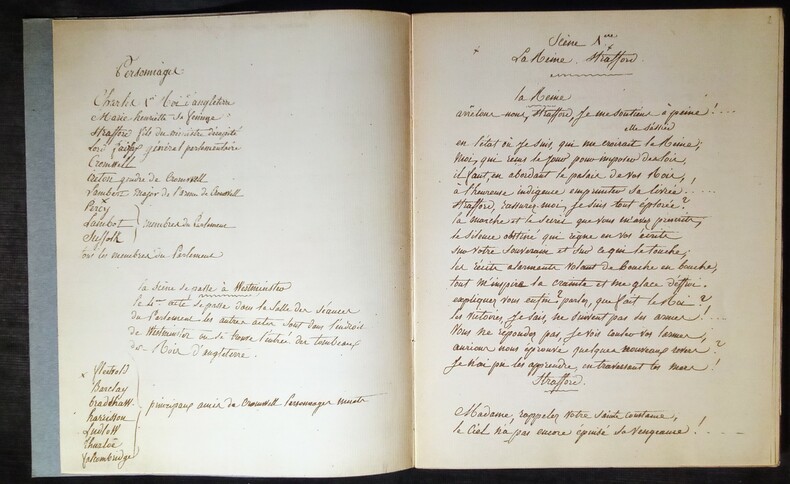 Personnages
Charles 1er Roi d'angleterre
Marie henriette sa femme
Strafford fils du ministre décapité
Lord fairfax général parlementaire
Cromwell
acton gendre de Cromwell
Lambert major de l'armée de Cromwell
Percy
Lambot
Suffolk
membres du Parlement
tous les membres du Parlement
la Scène se passe à Westminster
le 4me acte se passe dans la Salle des Séances
du Parlement les autres actes sont dans l'endroit
de Westminster ou se trouve l'entrée des tombeaux
des Rois d'angleterre.
Barclay
bradshaw
harisson
Ludlow
Charloë
falcombridge
principaux amis de Cromwell Personnages muets
2
Scène 1ere
La Reine. Strafford.
la Reine
arrêtons nous, Strafford, Je me soutiens à peine!...
elle s'assied
en l'état où Je suis, qui me croirait la Reine;
Moi, qui reçus le Jour pour imposer des loix,
il faut en abordant le palais de vos Rois,
à l'heureuse indigence emprunter sa livrée.....!
Strafford, rassurez-moi, Je suis tout éplorée?
la marche et le Secret que vous m'avez prescrits,
le Silence obstiné qui règne en vos écrits
Sur votre Souverain et Sur ce qui le touche;
les récits alarmants volant de Bouche en bouche,
tout m'inspire la crainte et me glace d'effroi.
expliquez vous enfin? parlez, que fait le Roi?
les victoires, Je sais, ne suivent pas ses armes!...
Vous ne répondez pas, Je vois couler vos larmes,
aurions nous éprouvé quelques nouveaux revers?
Je n'ai pu les apprendre, en traversant les mers!
Strafford.
Madame, rappelez votre Sainte constance,
le Ciel n'a pas encore épuisé Sa Vengeance!....